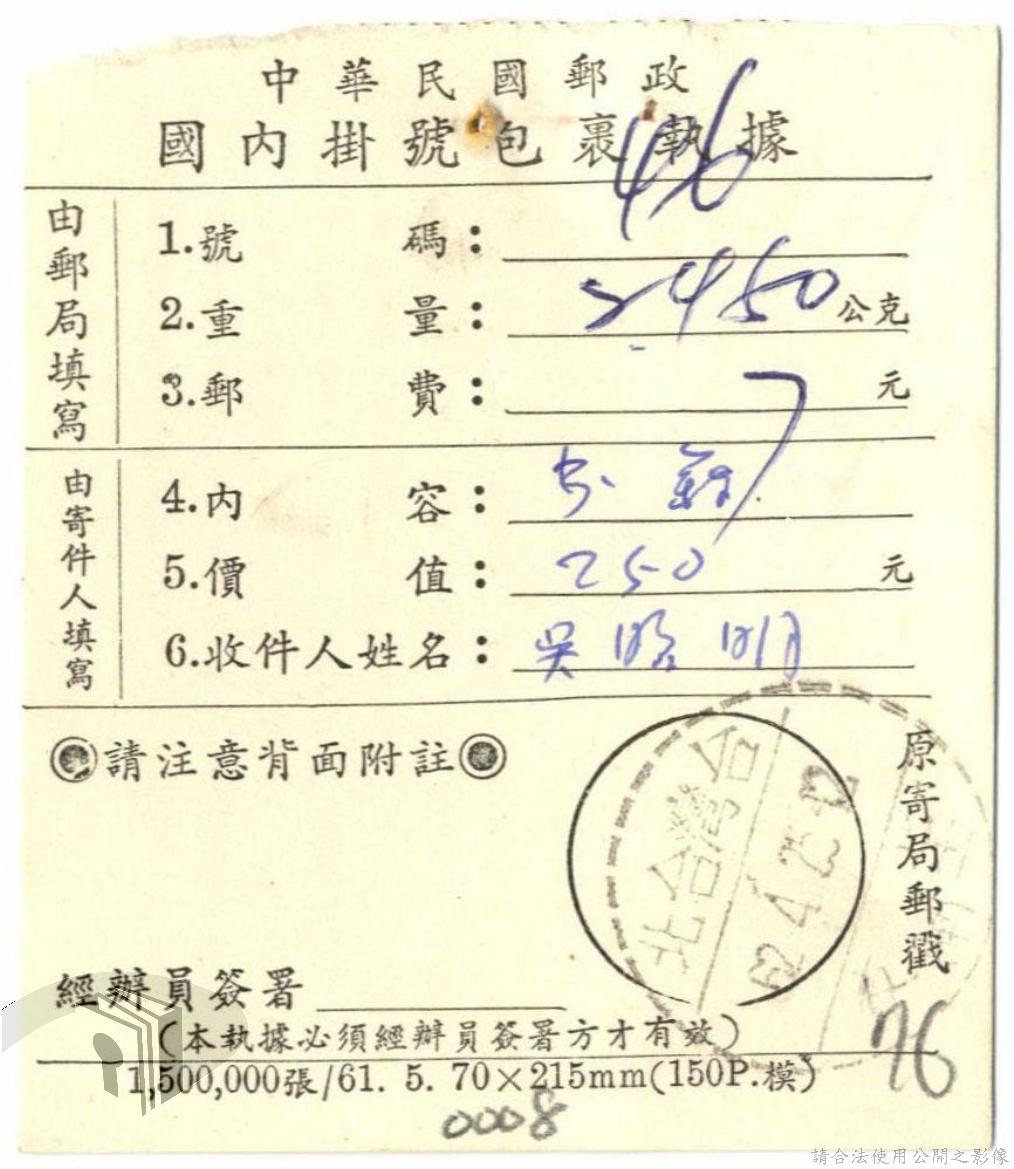 中華民國郵政
國內掛號包裹執據
由郵局填寫
1.號碼： 46
2.重量： 2450 公克
3.郵費： 7 元
由寄件人填寫
4.內容：
5.價值： 250 元
6.收件人姓名： 吳 明
請注意背面附註
原寄局郵戳
台灣台北
經辦員簽署
(本執據必須經辦員簽署方才有效)
1,500,000張/61. 5. 70×215mm(150P.模)
76
0008
請合法使用公開之影像